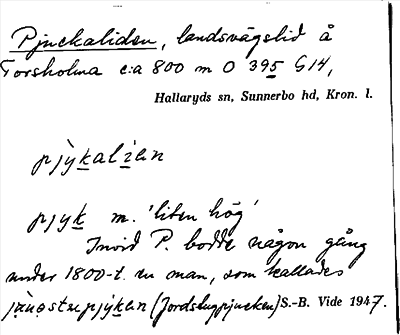 Pjuckaliden, landsvägslid å
Torsholma c:a 800 m O 395 G14,
Hallaryds sn, Sunnerbo hd, Kron. l.
pjỳkalien
pjyk m. 'liten hög'
Invid P. bodde någon gång
under 1800-t. en man, som kallades
(Jordstugpjucken) S.-B. Vide 1947.